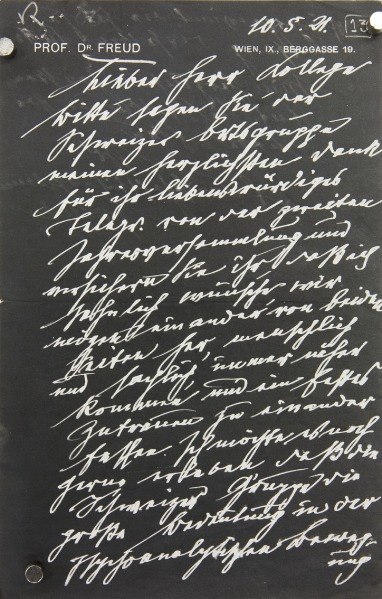 R.
10.5.21. 13
PROF. DR. FREUD WIEN, IX., BERGGASSE 19.
Lieber Herr College
bitte sagen Sie der
Schweizer Ortsgruppe
meinen herzlichsten Dank
für ihr liebenswürdiges
Telegr. von der zweiten
Jahresversammlung und
versichern Sie ihr, daß ich
sehnlich wünsche wir
mögen einander von beiden
Seiten her, menschlich
und sachlich, immer näher
kommen, und ein festes
Zutrauen zu einander
fassen. Ich möchte es noch
gerne erleben daß die
Schweizer Gruppe die
große Bedeutung in der
psychoanalytischen Beweg-
ung